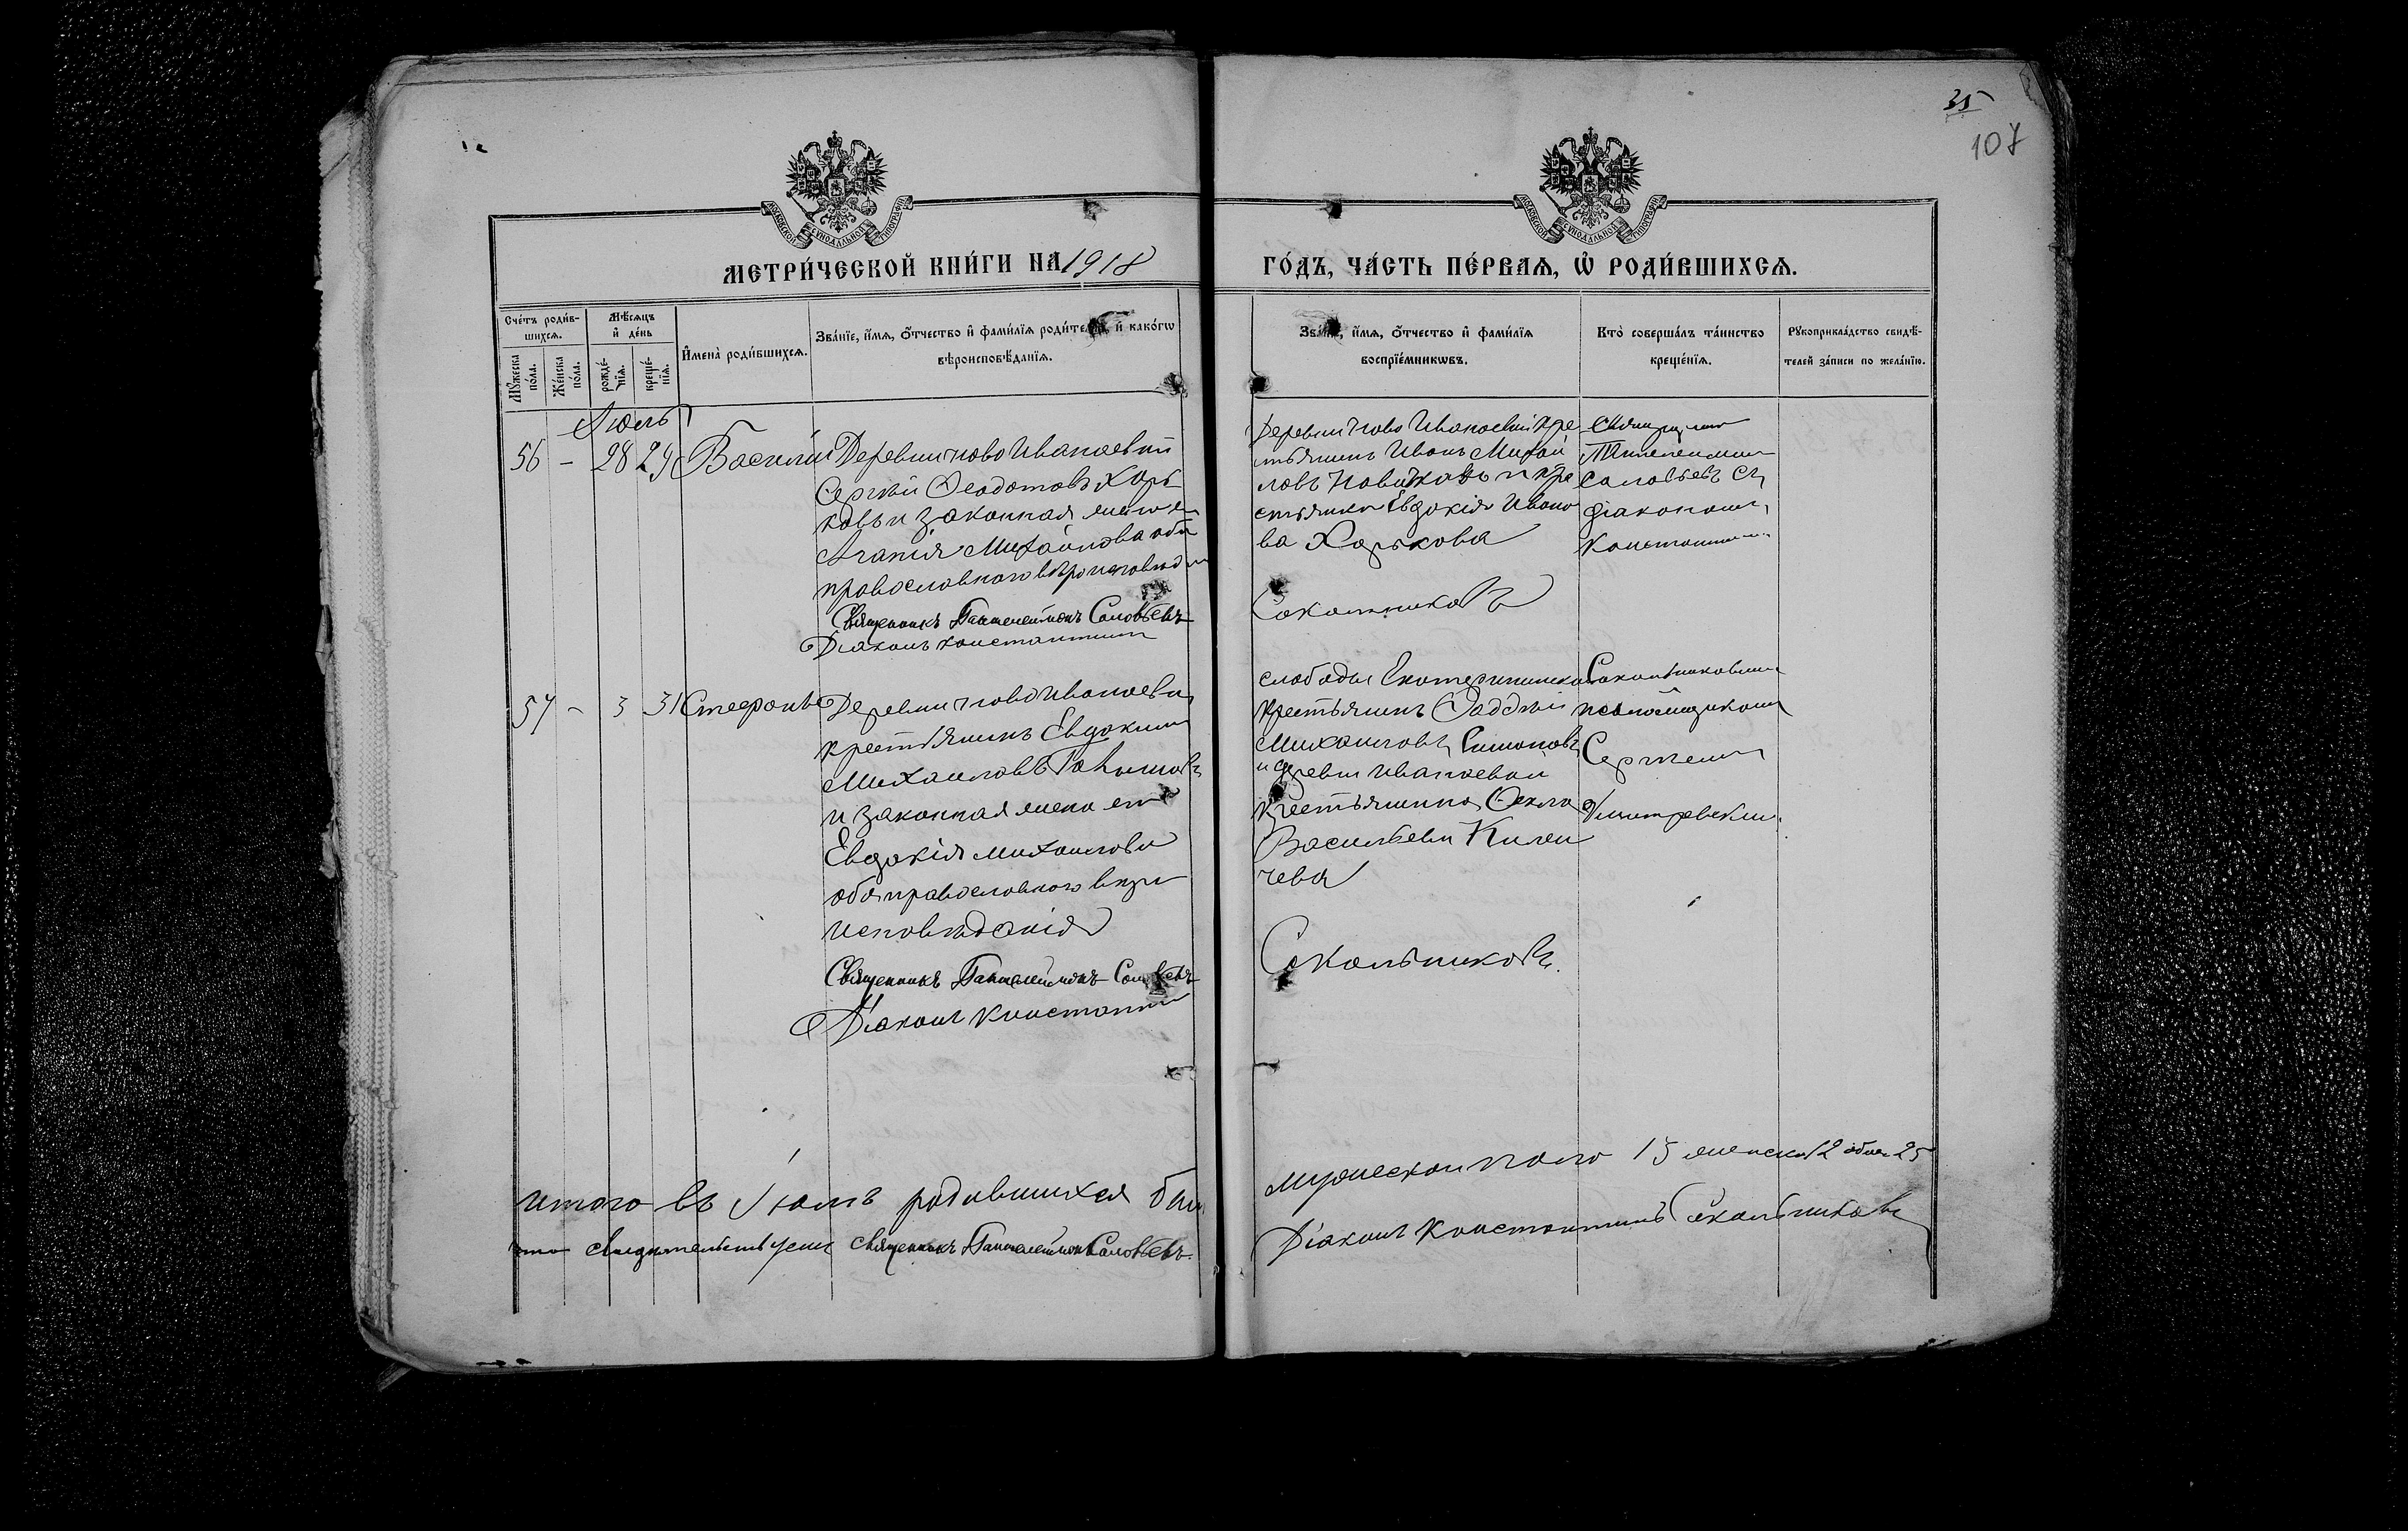 35
107
МЕТРИ́ЧЕСКОЙ КНИ́ГИ НА 1918
ГО́ДЪ, ЧА́СТЬ ПЕ́РВАЯ, Ѡ҆ РОДИ́ВШИХСЯ.
Сче́тъ роди́в-
шихся.
Мꙋ́жеска по́ла.
Же́нска по́ла.
Мѣ́сяцъ
и҆ де́нь
рожде́-
нїя.
креще́-
нїя.
И҆мена̀ роди́вшихся.
Зва́нїе, и҆́мя, ѻ҆́тчество и҆ фами́лїя роди́телей, и҆ како́гѡ
вѣроисповѣ́данїя.
Зва́нїе, и҆́мя, ѻ҆́тчество и҆ фами́лїя
воспрїе́мникѡвъ.
Кто̀ соверша́лъ та́инство
креще́нїя.
Рꙋкоприкла́дство свидѣ́-
телей за́писи по жела́нїю.
Июль
56 - 28 29 Василій
Деревни ново Иванаевки
Сергѣй Феодотовъ Харь
ковъ и законная жена его
Агапія Михайлова оба
православнаго вѣроисповѣд
Священникъ Пантелеймонъ Соловьевъ
Діаконъ Константинъ
Деревни Ново Иванаевки кре
тьянинъ Иванъ Михай
ловъ Новиковъ и кре
стьянка Евдокія Ивано
ва Харькова
Сокольниковъ
Священникъ
Пантелеимон
Соловьевъ съ
діакономъ
Константином
57 - 3 31 Стефанъ
Деревни ново Иванаевки
крестьянинъ Евдокимъ
Михаиловъ
и законная жена его
Евдокія Михаилова
оба православнаго вѣро
исповѣданія
Священникъ Пантелеймонъ Соловьевъ
Діаконъ Константинъ
слободы Екатериновка
крестьянинъ Фаддей
Михаиловъ Симоновъ
и деревни Иванаевки
крестьянка Фекла
Васильева Килен
чева
Сокольниковъ
Сокольниковым
и псаломщикомъ
Сергеем
Дмитревским.
Итого въ Июлѣ родившихся было
мужеска пола 13 женска 12 обоего 25
что свидѣтельствуемъ Священникъ Пантелеймонъ Соловьевъ.
Діаконъ Константинъ Сокольниковъ